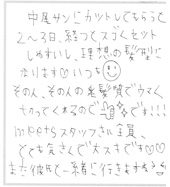 中尾サンにカットしてもらうと
2〜3日、経つとスゴくセット
しやすいし、理想の髪型に
なります♡♡いつも
その人、その人の毛髪質でウマく
切ってくれるので です!!!
meetsスタッフさん全員、
とても気さくで大スキです。
また彼氏と一緒に行きますネ